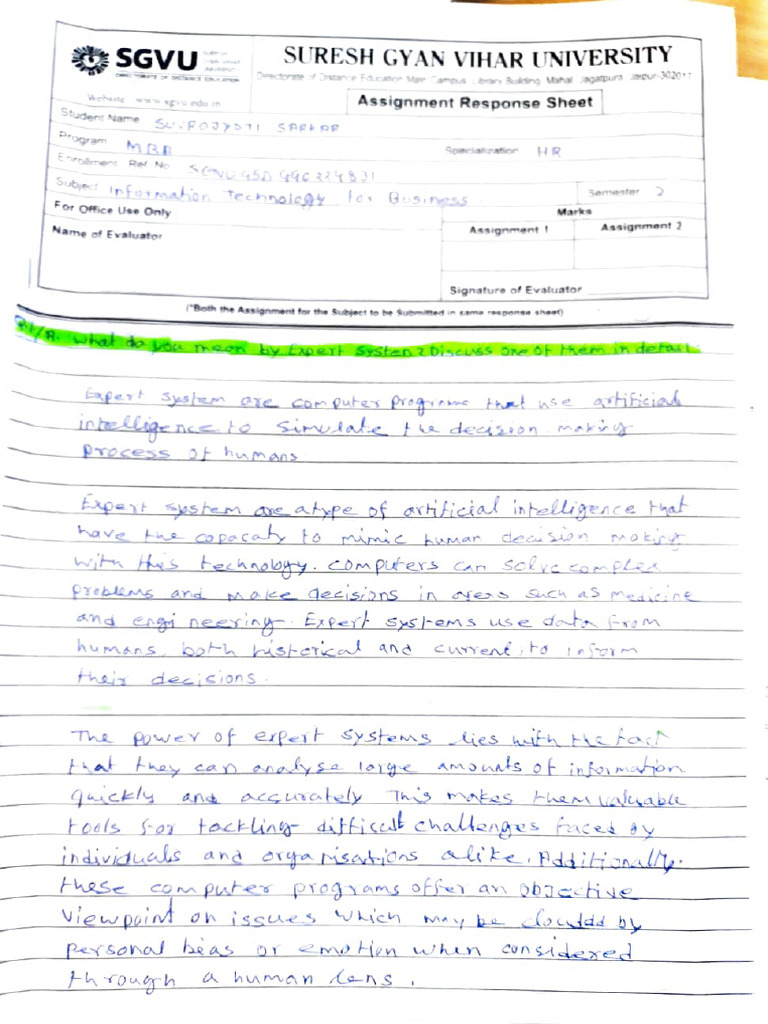 SGVU
SURESH GYAN VIHAR UNIVERSITY
DIRECTORATE OF DISTANCE EDUCATION
Directorate of Distance Education Main Campus Library Building, Mahal, Jagatpura, Jaipur-302017
Website www.sgvu.edu.in
Assignment Response Sheet
Student Name SARKAR
Program MBA
Specialization HR
Enrollment Ref. No.
Subject Information Technology for Business
Semester 2
For Office Use Only
Marks
Name of Evaluator
Assignment 1
Assignment 2
Signature of Evaluator
(*Both the Assignment for the Subject to be Submitted in same response sheet)
What do you mean by Expert System? Discuss one of them in detail.
Expert system are computer programe that use artificial
intelligence to simulate the decision making
process of humans
Expert system are a type of artificial intelligence that
have the capacaty to mimic human decision making
with this technology. computers can solve complex
problems and make decisions in areas such as medicine
and engineering. Expert systems use data from
humans, both historical and current, to inform
their decisions.
The power of expert systems lies with the fact
that they can analyse large amounts of information
quickly and accurately This makes them valuable
tools for tackling difficult challenges faced by
individuals and organisations alike. Additionally.
these computer programs offer an objective
viewpoint on issues which may be clouded by
personal bias or emotion when considered
through a human lens.